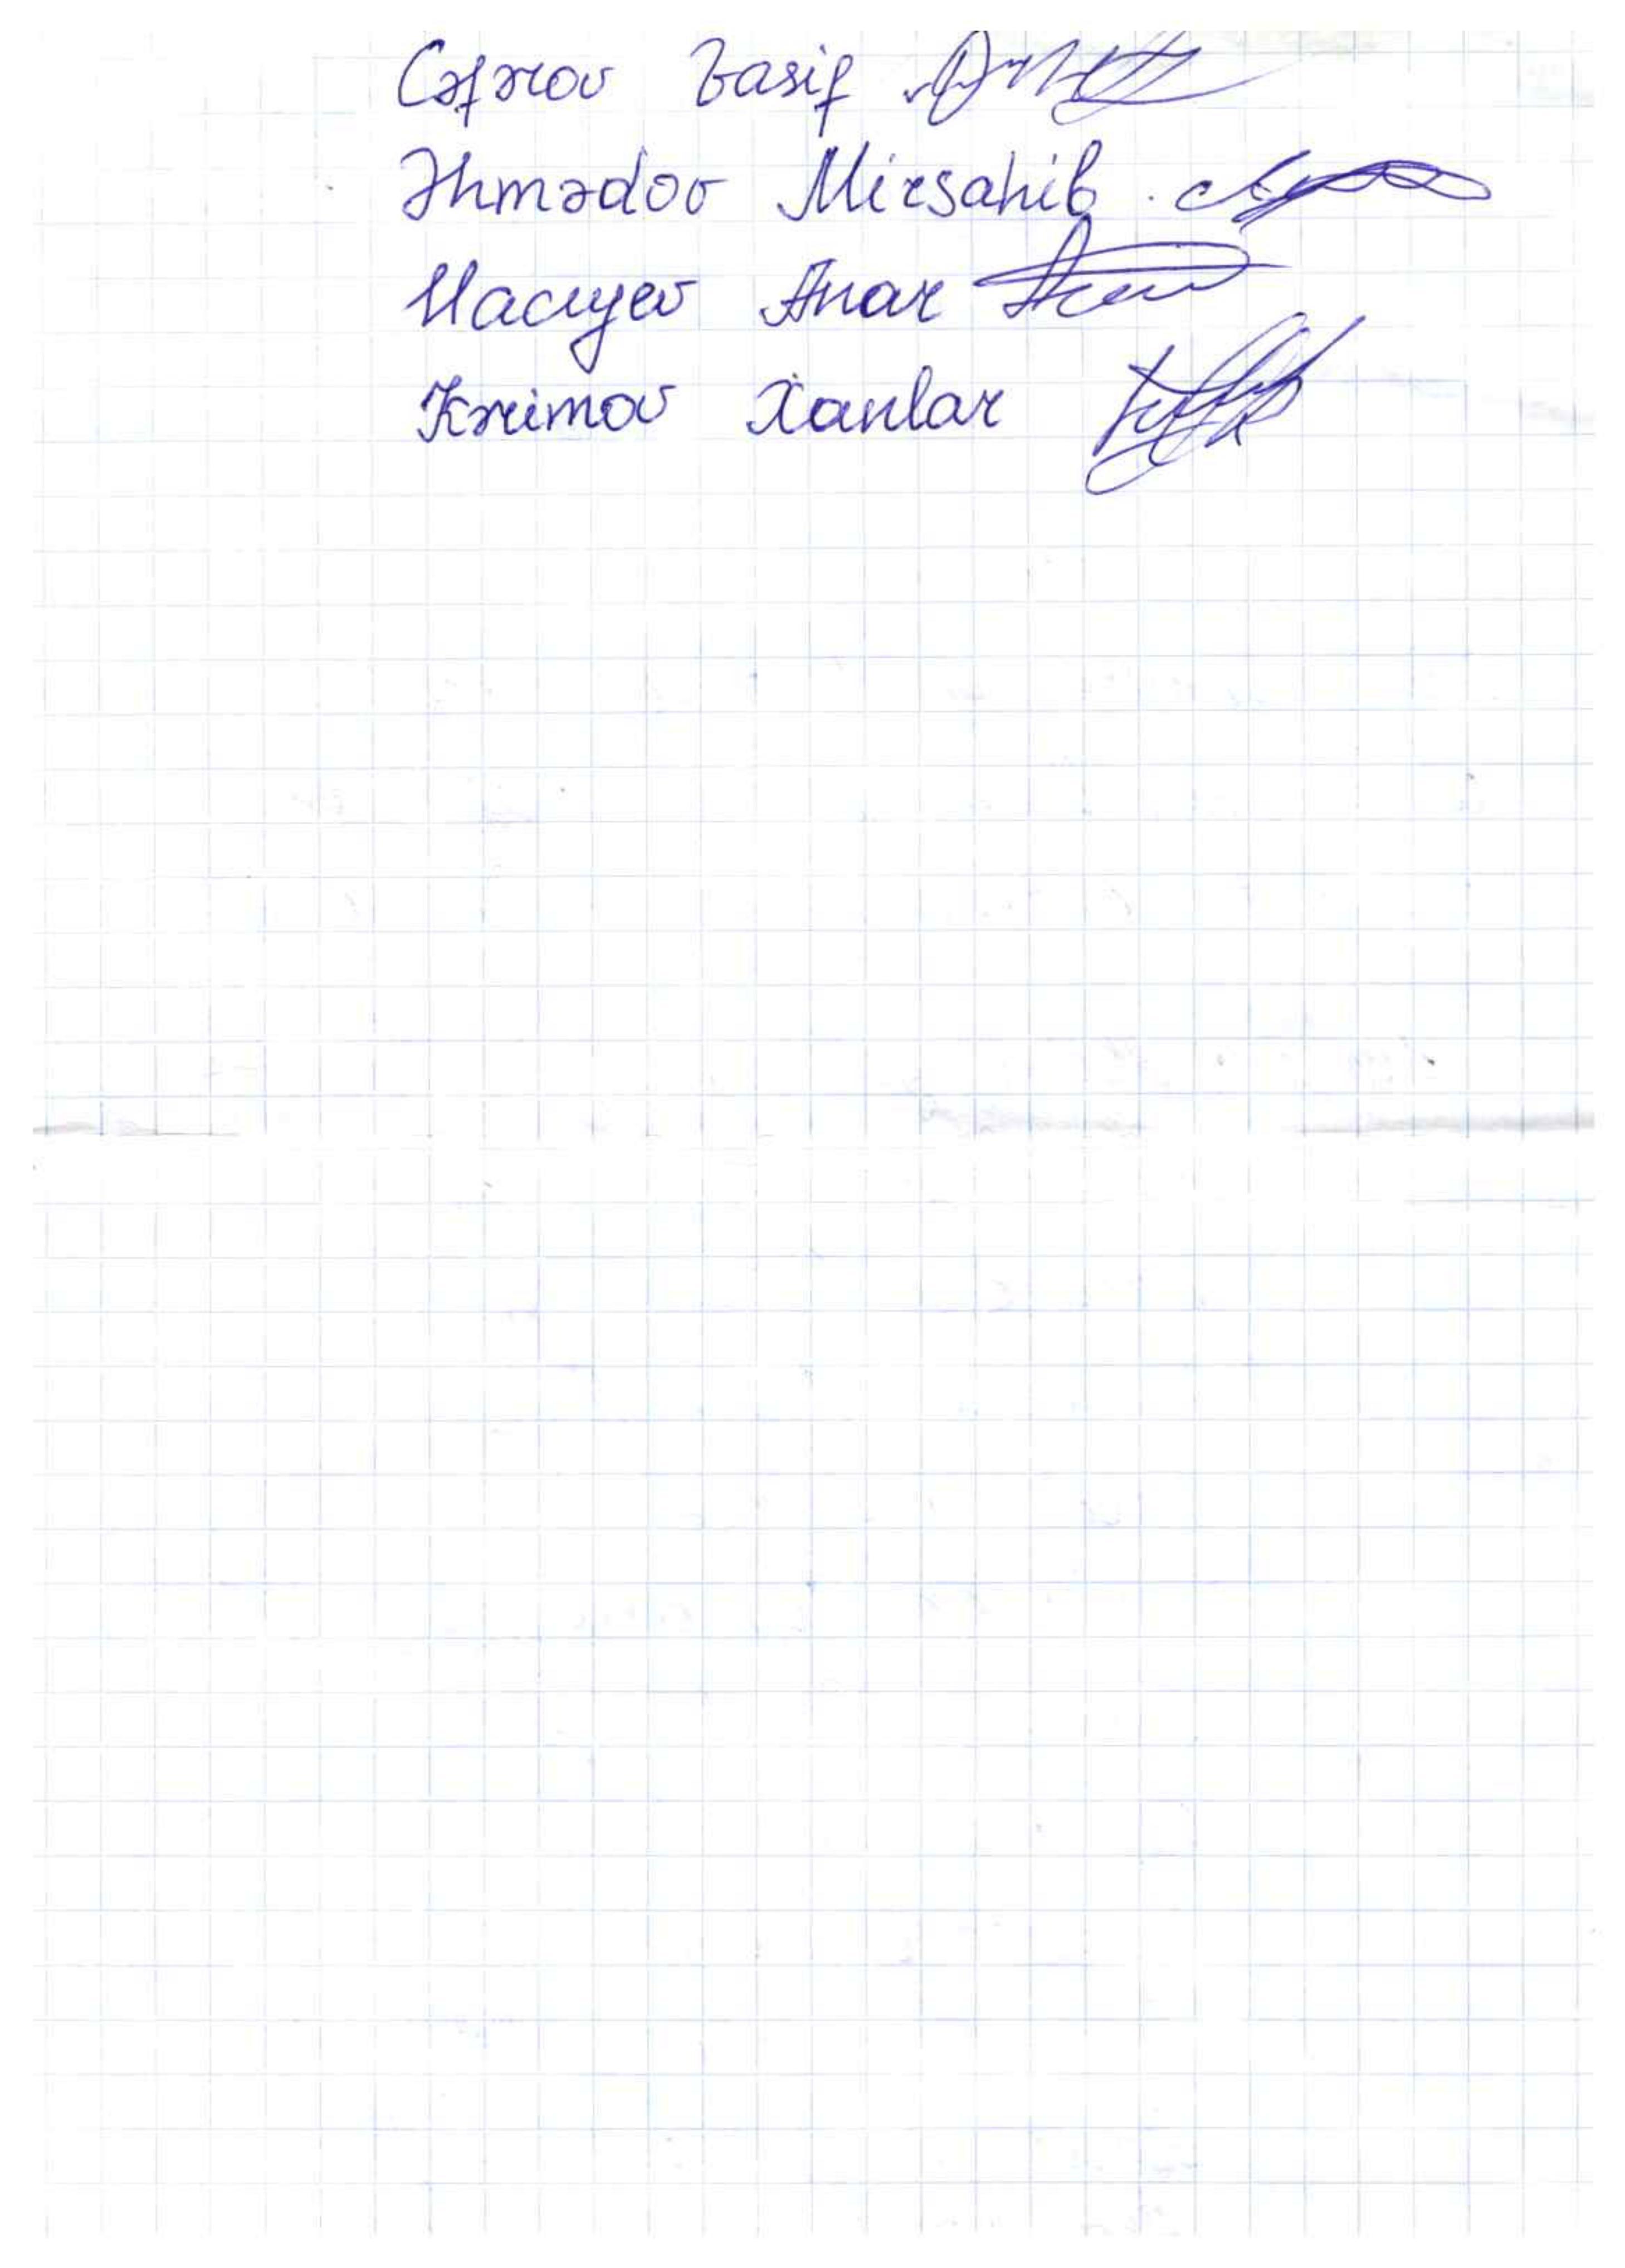 Cəfərov Vasif
Əhmədov Mirsahib
Hacıyev Anar
Kərimov Xanlar